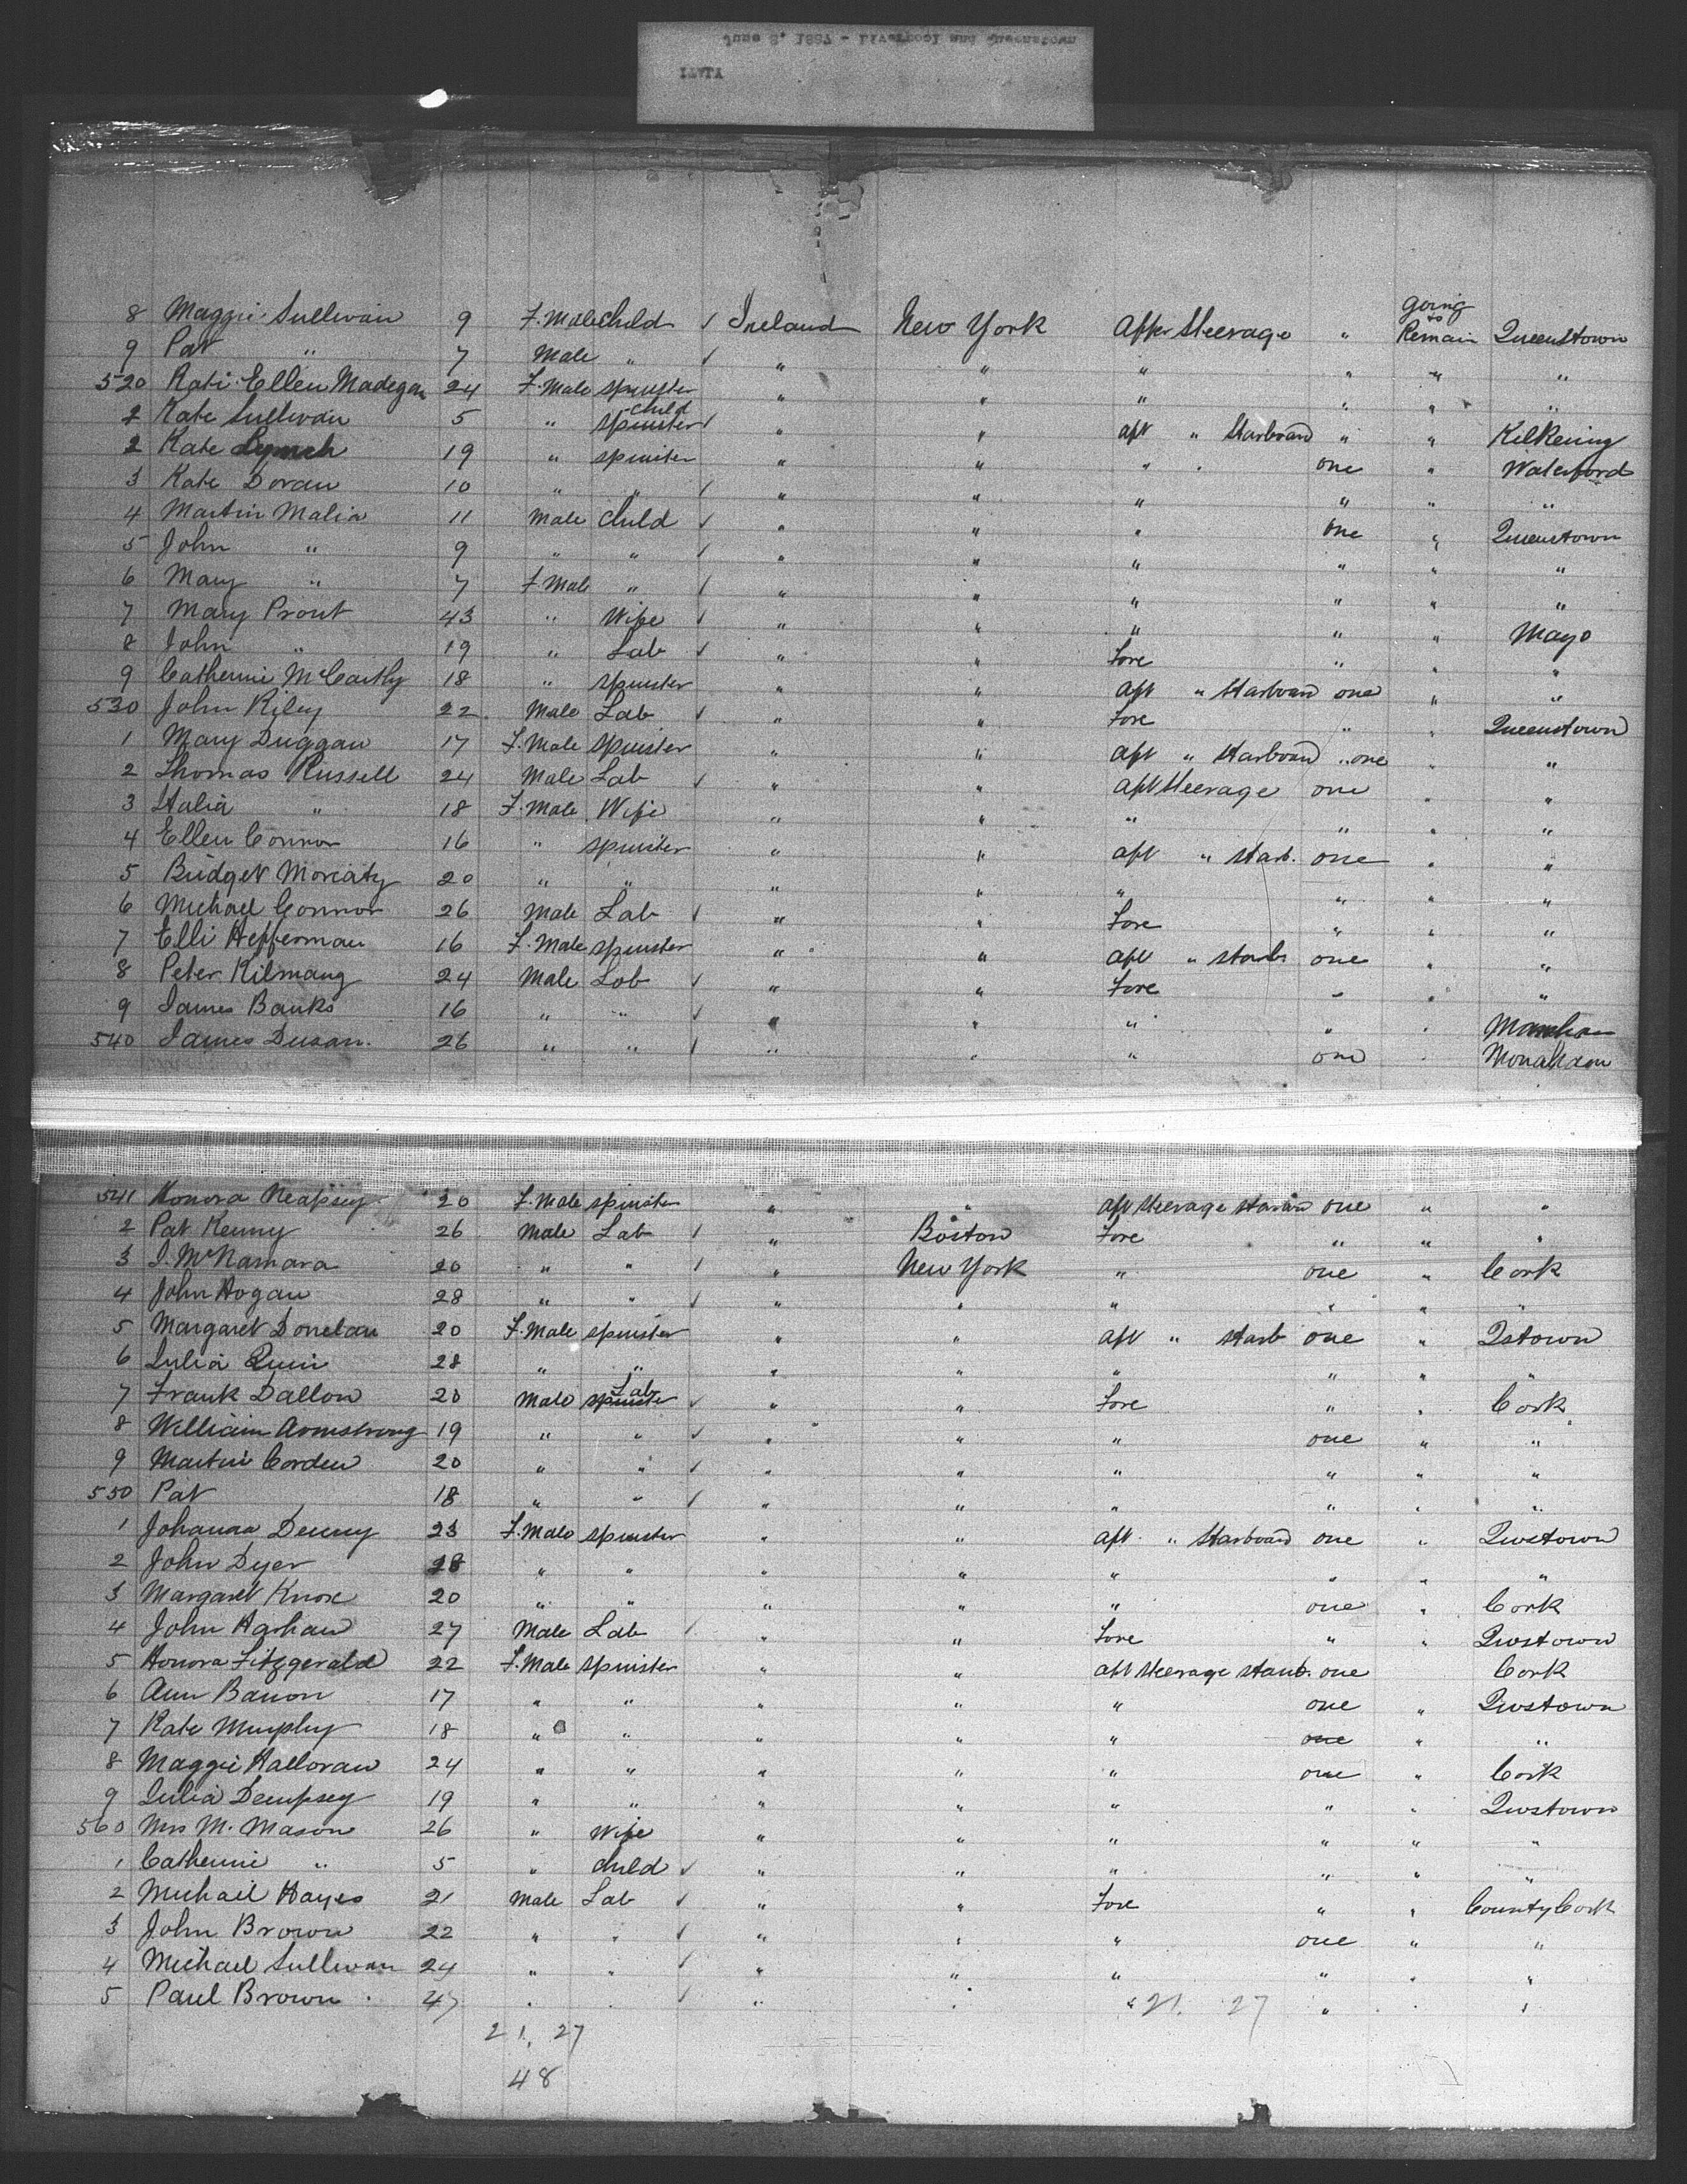 8 Maggie Sullivan 9 F. Male child ✓ Ireland New York After Steerage " going to Remain Queenstown
9 Pat " 7 Male " ✓ " " " " " "
520 Kati Ellen Madegan 24 F. Male spinster " " " " " "
2 Kate Sullivan 5 " child spinster ✓ " " aft " Starboard " " Kilkenny
2 Kate Lynch 19 " spinster " " " " one " Waterford
3 Kate Doran 10 " " ✓ " " " " " "
4 Martin Malia 11 Male child ✓ " " " one " Queenstown
5 John " 9 " " ✓ " " " " " "
6 Mary " 7 F. Male " ✓ " " " " " "
7 Mary Prout 43 " Wife ✓ " " " " " Mayo
8 John " 19 " Lab ✓ " " Fore " " "
9 Catherine McCarthy 18 " spinster " " aft " Starboard one " "
530 John Riley 22 Male Lab ✓ " " Fore " " Queenstown
1 Mary Duggan 17 F. Male spinster " " aft " Starboard " one " "
2 Thomas Russell 24 Male Lab ✓ " " aft Steerage one " "
3 Stalia " 18 F. Male Wife " " " " " "
4 Ellen Connor 16 " spinster " " aft " Starb. one " "
5 Bridget Moriaty 20 " " " " " " " "
6 Michael Connor 26 Male Lab ✓ " " Fore " " "
7 Elli Hefferman 16 F. Male spinster " " aft " starb. one " "
8 Peter Kilmang 24 Male Lab ✓ " " Fore " " "
9 James Banks 16 " " ✓ " " " " "
540 James Dusan. 26 " " ✓ " " " one " Monahdon
541 Honora Neapsey 20 F. Male spinster " " aft Steerage one " "
2 Pat Kenny 26 Male Lab ✓ " Boston Fore " " "
3 J. McNamara 20 " " ✓ " New York " one " Cork
4 John Hogan 28 " " ✓ " " " " " "
5 Margaret Donelan 20 F. Male spinster " " aft " starb one " Qstown
6 Julia Quin 28 " " " " " " " "
7 Frank Dallon 20 Male Lab spinster ✓ " " Fore " " Cork
8 William Armstrong 19 " " ✓ " " " one " "
9 Martin Corden 20 " " ✓ " " " " " "
550 Pat 18 " " ✓ " " " " " "
1 Johanna Denny 23 F. Male spinster " " aft " Starboard one " Qwstown
2 John Dyer 28 " " " " " " " "
3 Margaret Knox 20 " " " " " one " Cork
4 John Hashan 27 Male Lab ✓ " " Fore " " Qwstown
5 Honora Fitzgerald 22 F. Male spinster " " aft Steerage starb. one Cork
6 Ann Banon 17 " " " " " one " Qwstown
7 Kate Murphy 18 " " " " " one " "
8 Maggie Halloran 24 " " " " " one " Cork
9 Julia Dempsey 19 " " " " " " " Qwstown
560 Mrs M. Mason 26 " Wife " " " " " "
1 Catherine " 5 " child ✓ " " " " " "
2 Michael Hayes 21 Male Lab ✓ " " Fore " " County Cork
3 John Brown 22 " " ✓ " " " one " "
4 Michael Sullivan 24 " " ✓ " " " " " "
5 Paul Brown 47 " " ✓ " " " 21. 27 " " "
21, 27
48